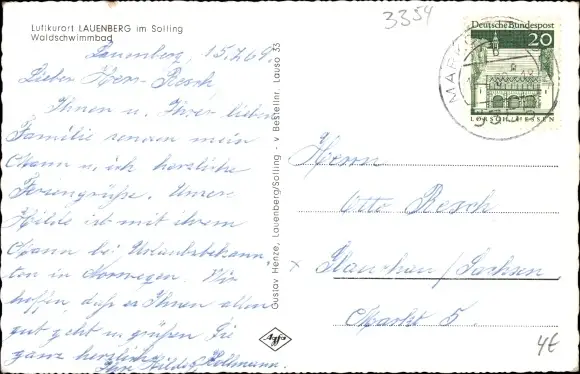 Luftkurort LAUENBERG im Solling
Waldschwimmbad
Lauenberg, 15.7.69
Lieber Herr Resch
Ihnen u. Ihrer lieben
Familie senden mein
Mann u. ich herzliche
Feriengrüße. Unsere
Hilde ist mit ihrem
Mann bei Urlaubsbekann
ten in Norwegen. Wir
hoffen, daß es Ihnen allen
gut geht u. grüßen Sie
ganz herzlich
Ihre Hilde Hollmann.
Gustav Henze, Lauenberg/Solling - v Bestellnr. Lauso 33
Agfa
3354
Deutsche Bundespost
20
LORSCH/HESSEN
MARK
Herrn
Otto Resch
x Glauchau/Sachsen
Markt 5.
4€